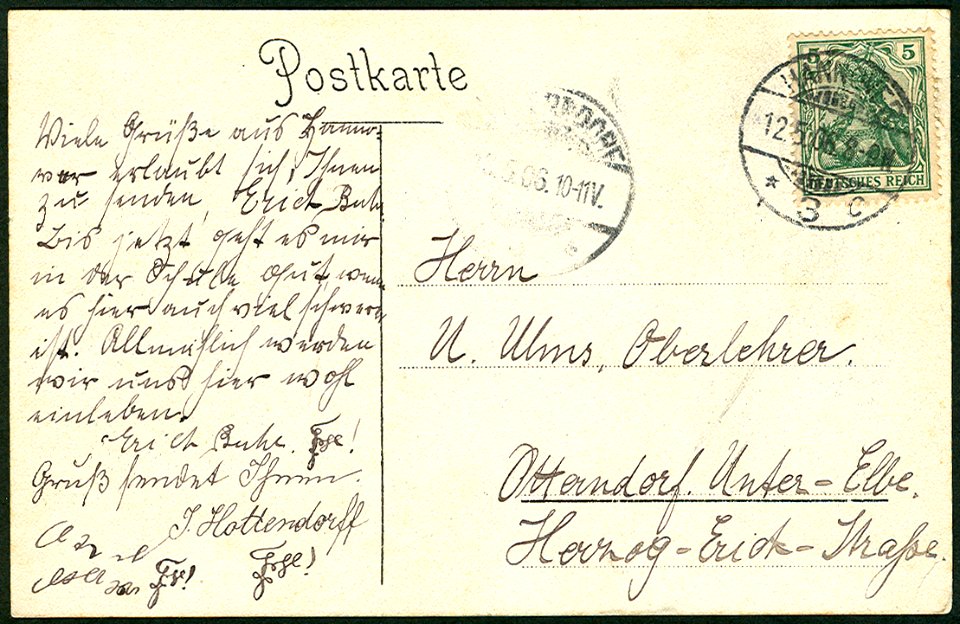 Postkarte
Viele Grüße aus Hanno-
ver erlaubt sich, Ihnen
zu senden, Erich Buhr.
Bis jetzt geht es mir
in der Schule gut, wenn
es hier auch viel schwerer
ist. Allmählich werden
wir uns hier wohl
einleben.
Erich Buhr.
Gruß sendet Ihnen.
J. Hottendorff
Herrn
U. Ulms, Oberlehrer.
Otterndorf. Unter-Elbe.
Herzog-Erich-Straße.
5 5
DEUTSCHES REICH
HANN
12.5.06.
3 c
5.06.10-11V.